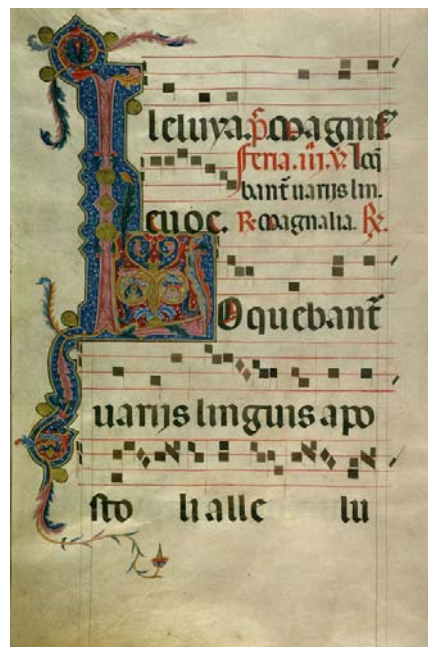 leluya. p̃. Magnif̃
feria. iij. ℣. loq̃
bant̃ uarijs lin.
euoe. ℟ magnalia. ℟.
LOquebant̃
uarijs linguis apo
sto li alle lu